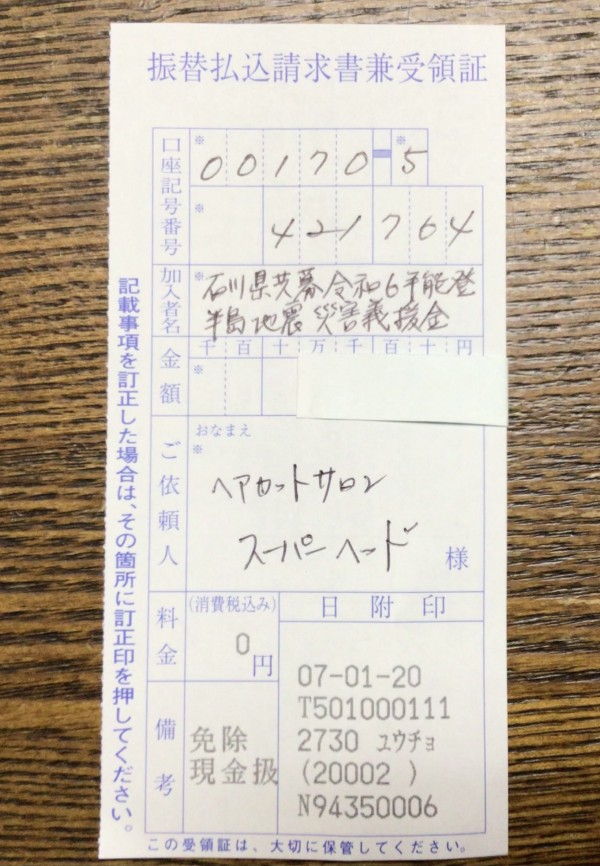 振替払込請求書兼受領証
口座記号番号
※ 00170-5 ※
※ 421764
加入者名
※ 石川県共募令和6年能登
半島地震災害義援金
金額
千百十万千百十円
※
ご依頼人
おなまえ
※
ヘアカットサロン
スーパーヘッド
様
料金
(消費税込み)
0
円
日附印
07-01-20
T501000111
2730 ユウチョ
(20002 )
N94350006
備考
免除
現金扱
記載事項を訂正した場合は、その箇所に訂正印を押してください。
この受領証は、大切に保管してください。